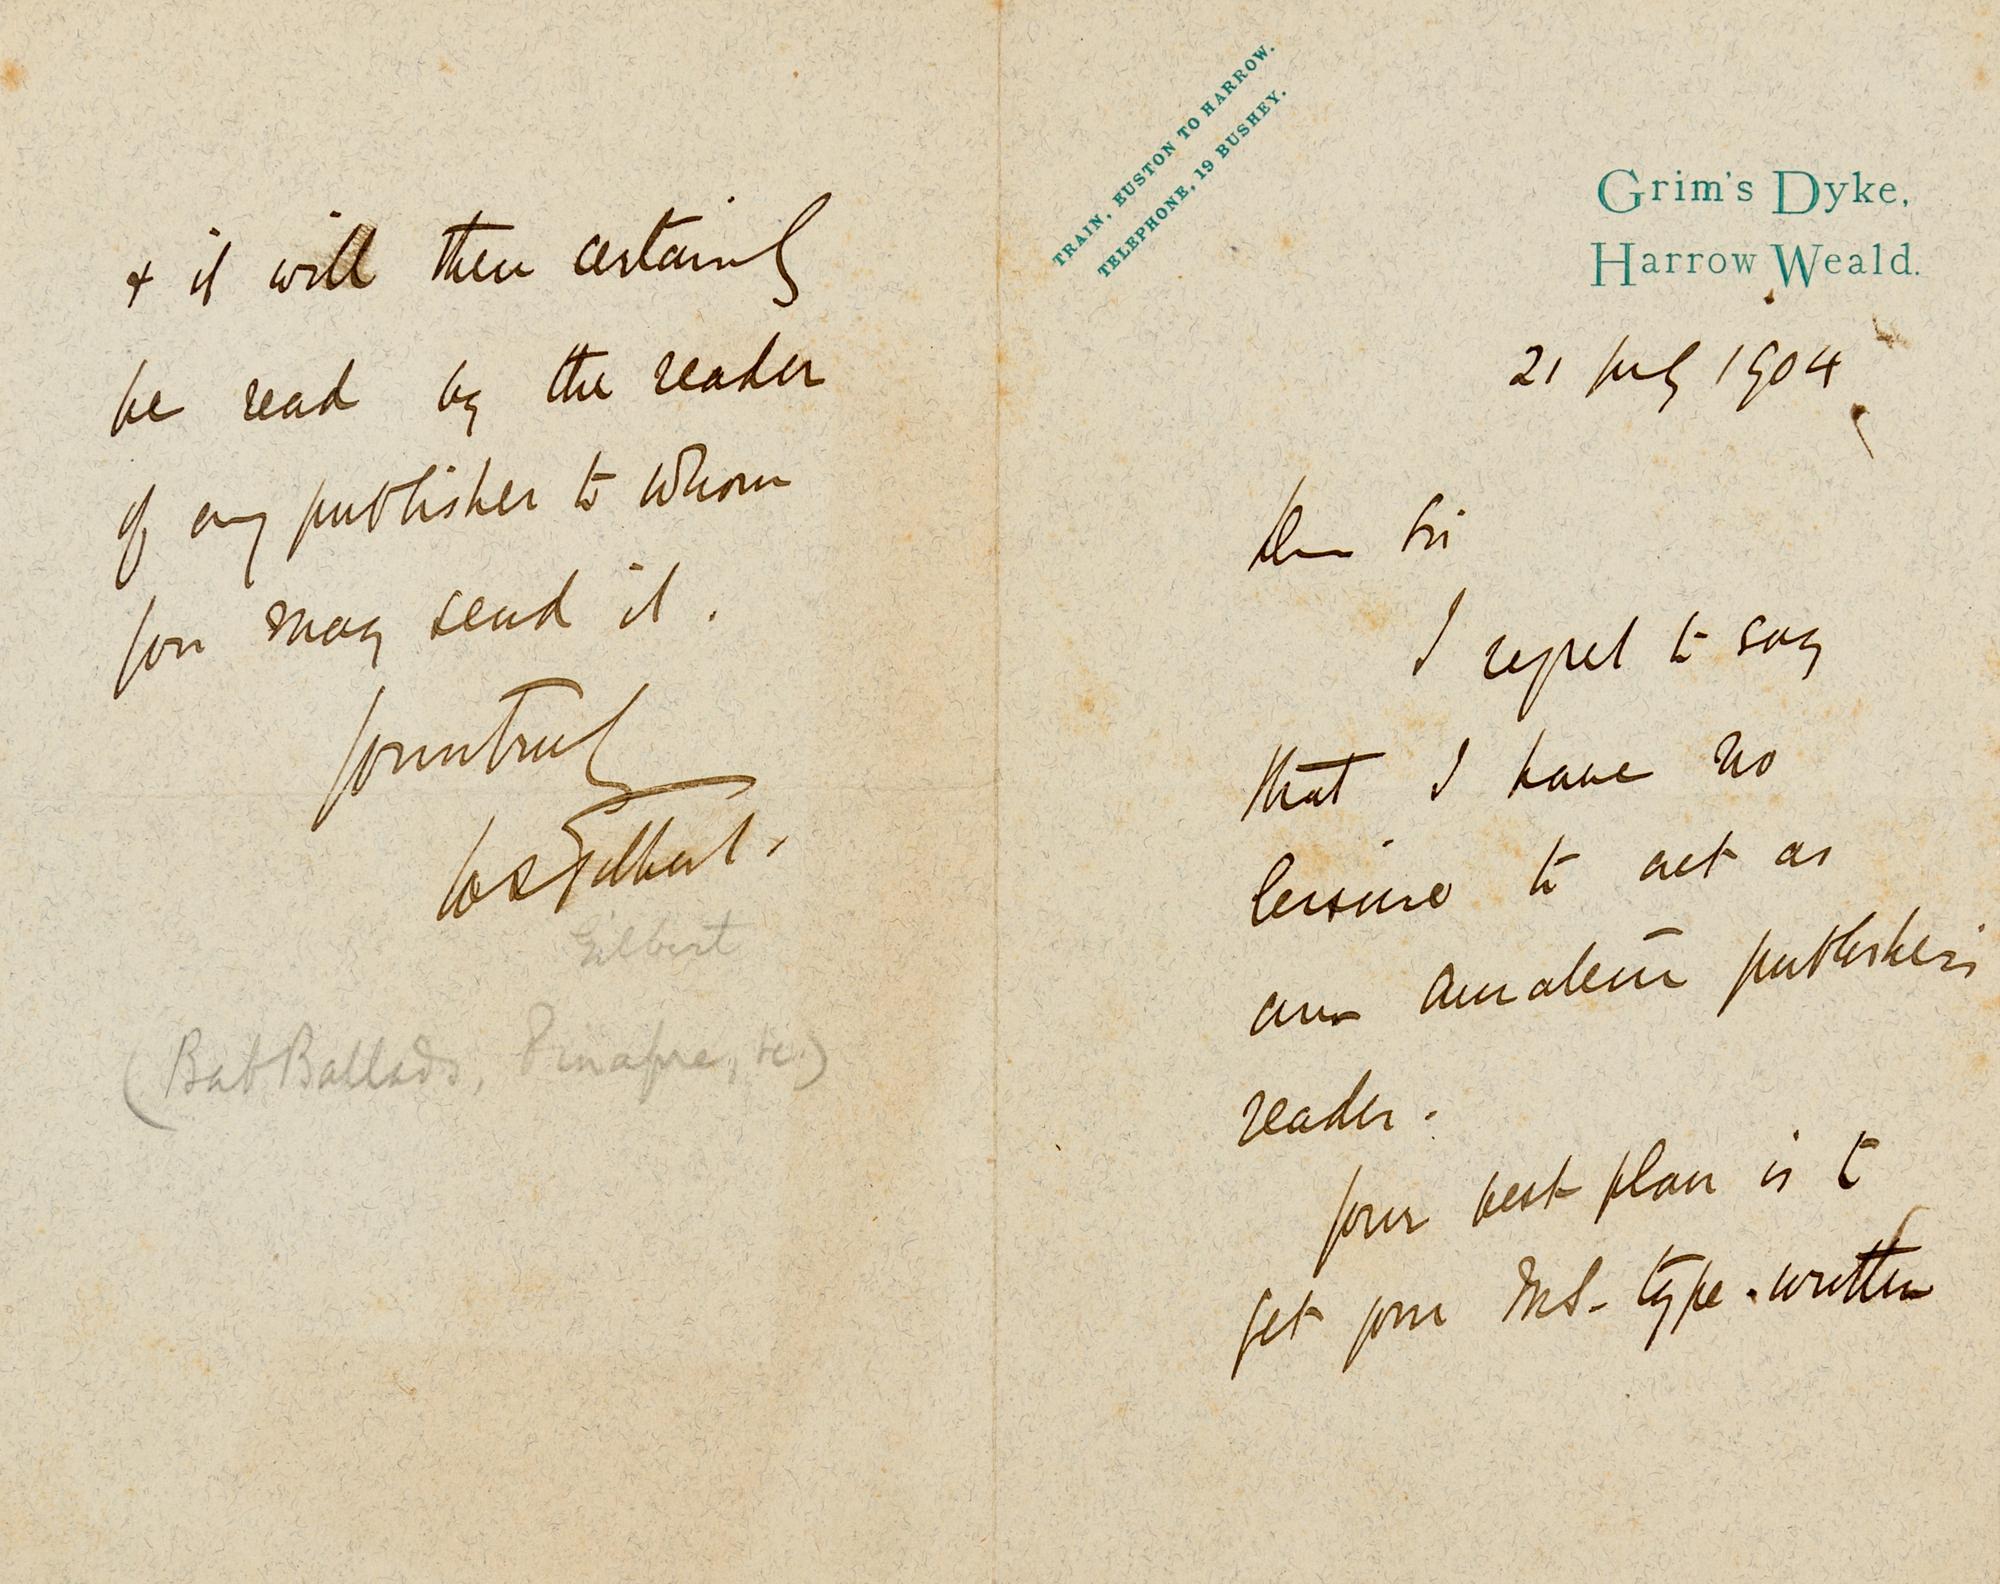 TRAIN, EUSTON TO HARROW.
TELEPHONE, 19 BUSHEY.
Grim's Dyke,
Harrow Weald.
21 July 1904
Dear Sir
I regret to say
that I have no
leisure to act as
an amateur publisher's
reader.
Your best plan is to
get your MS. type-written
& it will then certainly
be read by the reader
of any publisher to whom
you may send it.
Yours truly
WS Gilbert.
Gilbert
(Bab Ballads, Pinafore, &c.)